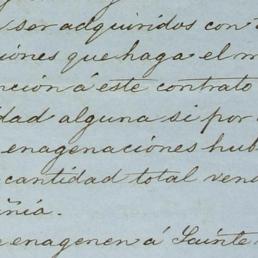 ser adquiridos con
iones que haga el m
nción á este contrato
dad alguna si por
enagenaciónes hub
cantidad total ven
ñia.
enagenen á Sainte